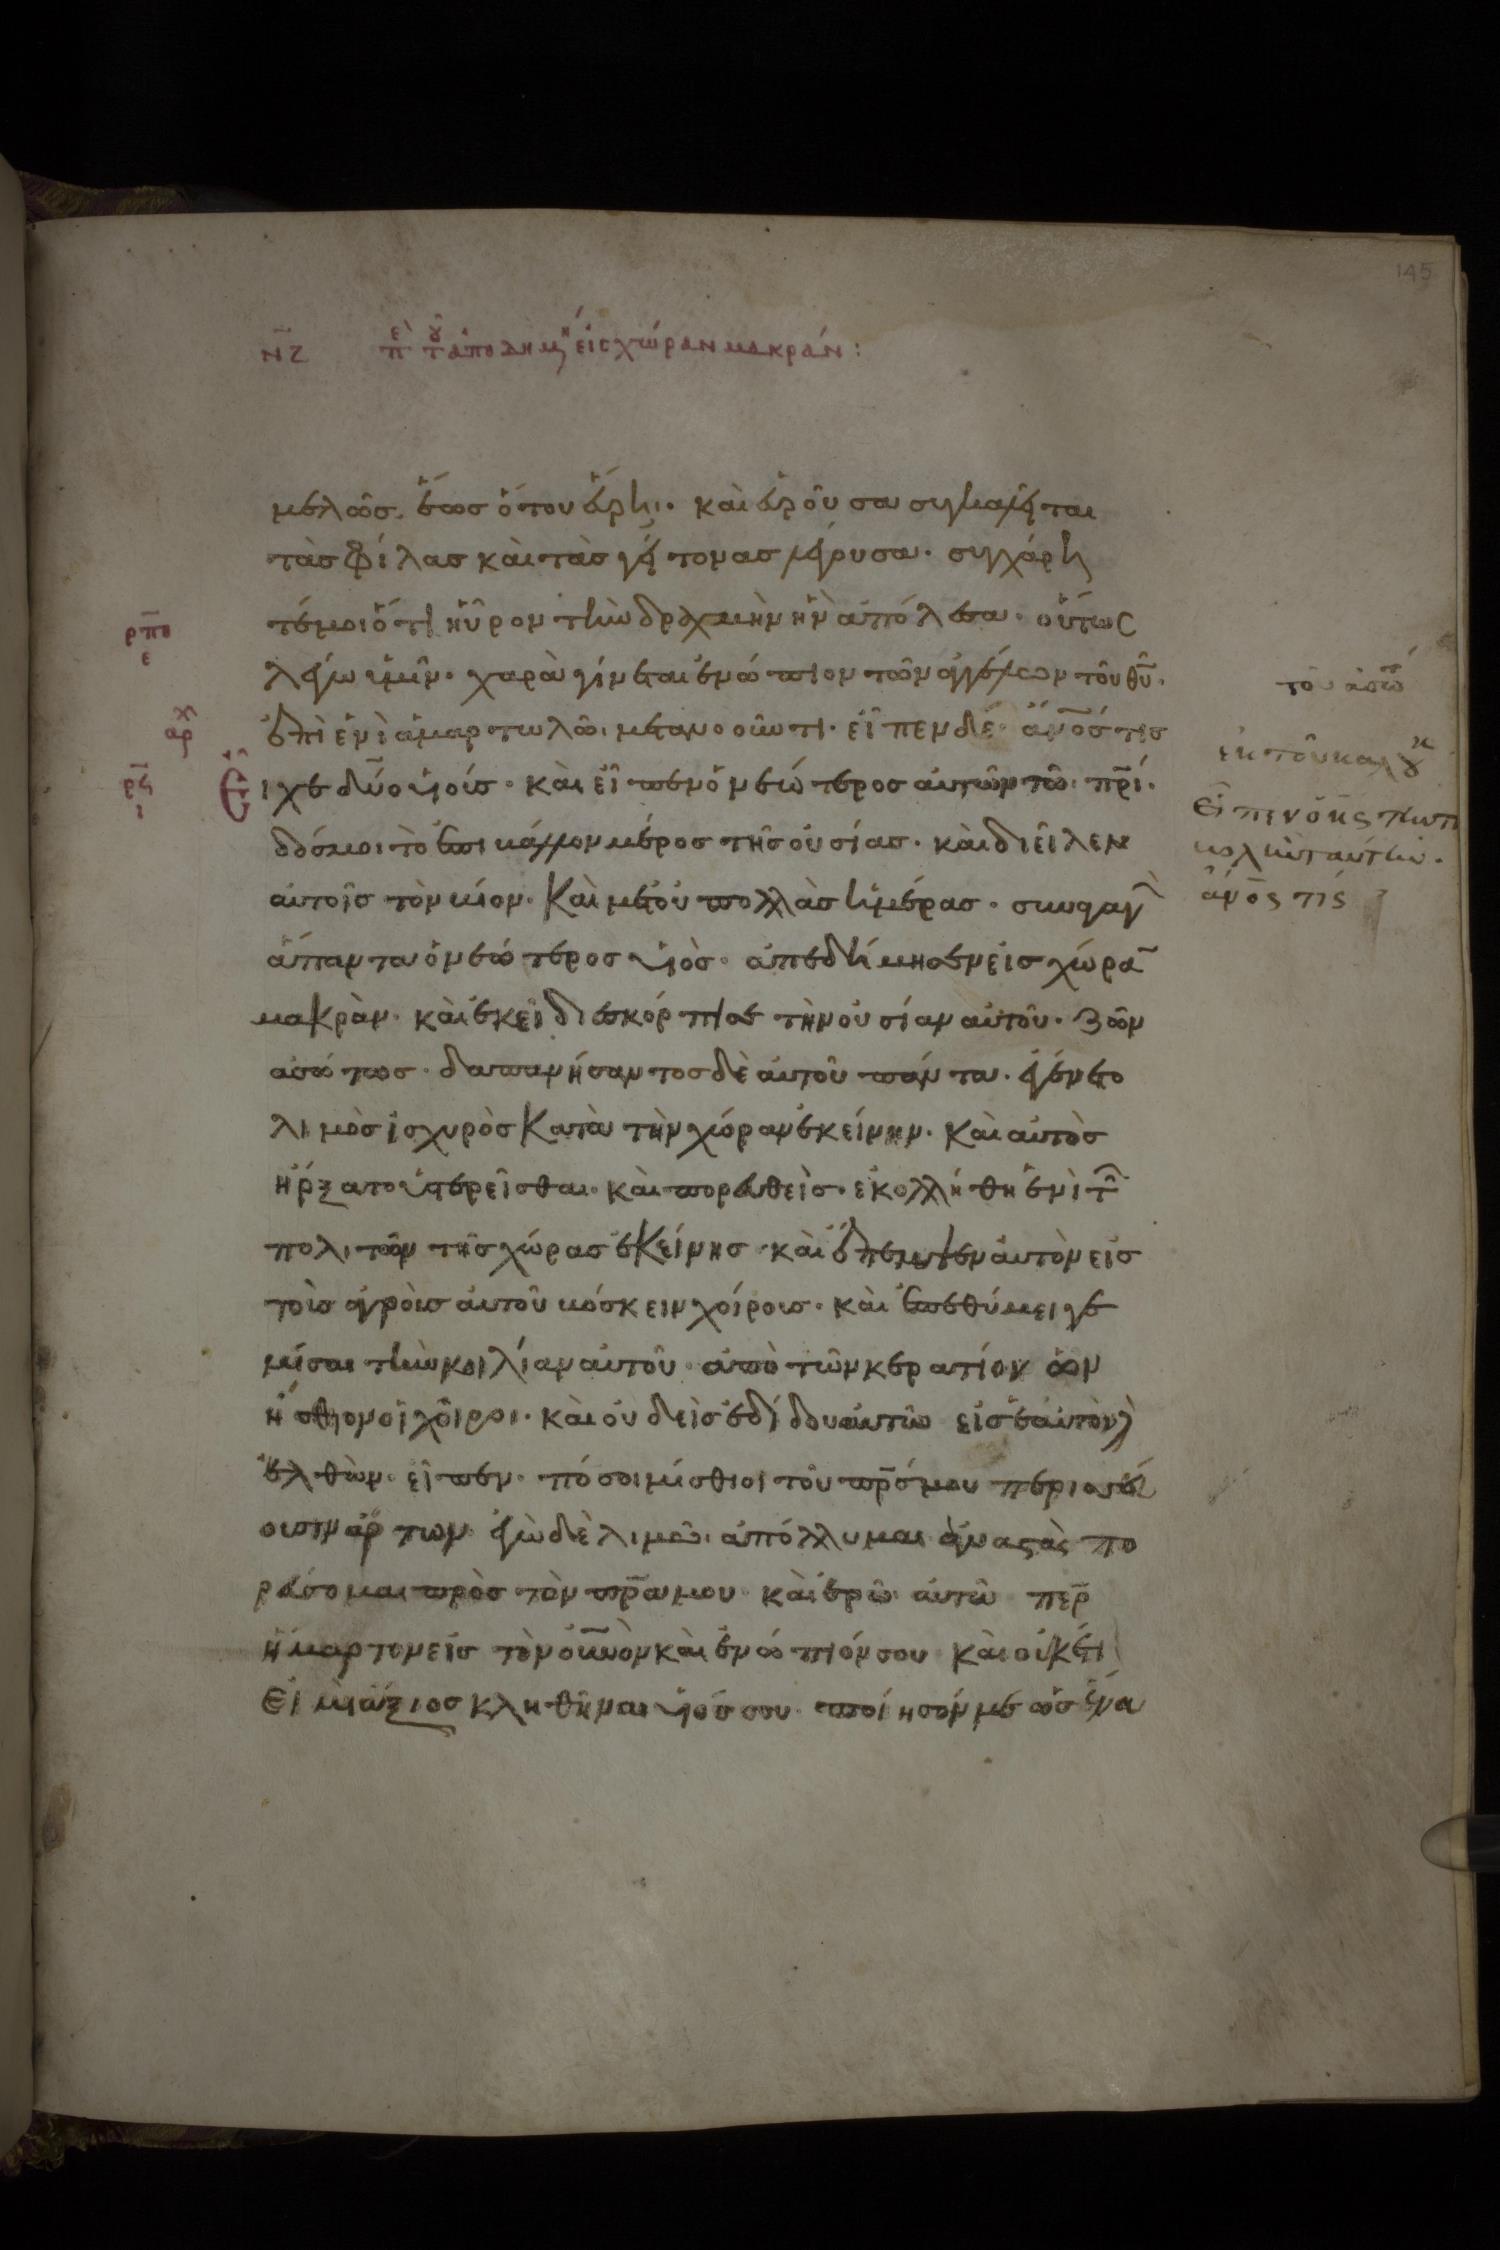 145
ΝΖ πε του αποδημη εἰς χώραν μακράν:
μελῶσ. ἕωσ ὅτου ἕυρηι. καὶ ἑυροῦσα συγκαλεῖται
τὰσ φίλασ καὶ τὰσ γείτονασ λέγουσα. συγχάρη
τέ μοι ὅτι ηὗρον τὴν δραχμὴν ἣν ἀπόλεσα. οὕτως
λέγω ὑμῖν. χαρὰ γίνεται ἐνώπιον τῶν ἀγγέλων τοῦ θ̅υ̅.
ἐπὶ ἑνὶ ἁμαρτωλῶι μετανοοῦντι. εἶπεν δέ. ἄν̅ο̅σ τισ
εἶχε δύο υἱούσ. καὶ εἶπεν ὁ νεώτεροσ αὐτῶν τῶ π̅ρ̅ι̅.
δόσ μοι τὸ ἐπιβάλλον μέροσ τῆσ οὐσίασ. καὶ διεῖλεν
αὐτοῖσ τὸν βίον. Καὶ μετ' οὐ πολλὰσ ἡμέρασ. συναγαγ
ἅπαντα ὁ νεώτεροσ υἱὸσ. ἀπεδήμησεν εἰσ χώρα̅
μακρὰν. καὶ ἐκεῖ διεσκόρπισε τὴν οὐσίαν αὐτοῦ. ζῶν
ἀσώτωσ. δαπανήσαντοσ δὲ αὐτοῦ πάντα. ἐγένετο
λιμὸσ ἰσχυρὸσ κατὰ τὴν χώραν ἐκείνην. καὶ αὐτὸσ
ἤρξατο ὑστερεῖσθαι. καὶ πορευθεὶσ. ἐκολλήθη ἑνὶ τ
πολιτῶν τῆσ χώρασ ἐκείνησ. καὶ ἔπεμψεν αὐτὸν εἰσ
τοὺσ ἀγροὺσ αὐτοῦ βόσκειν χοίρουσ. καὶ ἐπεθύμει γε
μίσαι τὴν κοιλίαν αὐτοῦ. ἀπὸ τῶν κερατίων ὧν
ἤσθιον οἱ χοῖροι. καὶ οὐδεὶσ ἐδίδου αὐτῶ εἰσ ἑαὐτὸν δ
ἐλθὼν. εἶπεν. πόσοι μίσθιοι τοῦ π̅ρ̅σ̅ μου περισσεύ
ουσιν ἄρτων. ἐγὼ δὲ λιμῶι ἀπόλλυμαι ἀναστὰς πο
ρεύσομαι πρὸσ τὸν π̅ρ̅α̅ μου. καὶ ἐρῶ αὐτῶ π̅ε̅ρ̅
ἥμαρτον εἰσ τὸν οὐ̅ν̅ὸν καὶ ἐνώπιόν σου καὶ οὐκέτι
εἰμὶ ἄξιοσ κληθῆναι υἱόσ σου. ποίησόν με ὡσ ἕνα
ρπθ
ε
αρχ
ρϟ
ι
του ἀσώτ
ἐκ τοῦ κατὰ λουκ
Εἶπεν ὁ κ̅ς
ἄν̅ο̅ς τίς